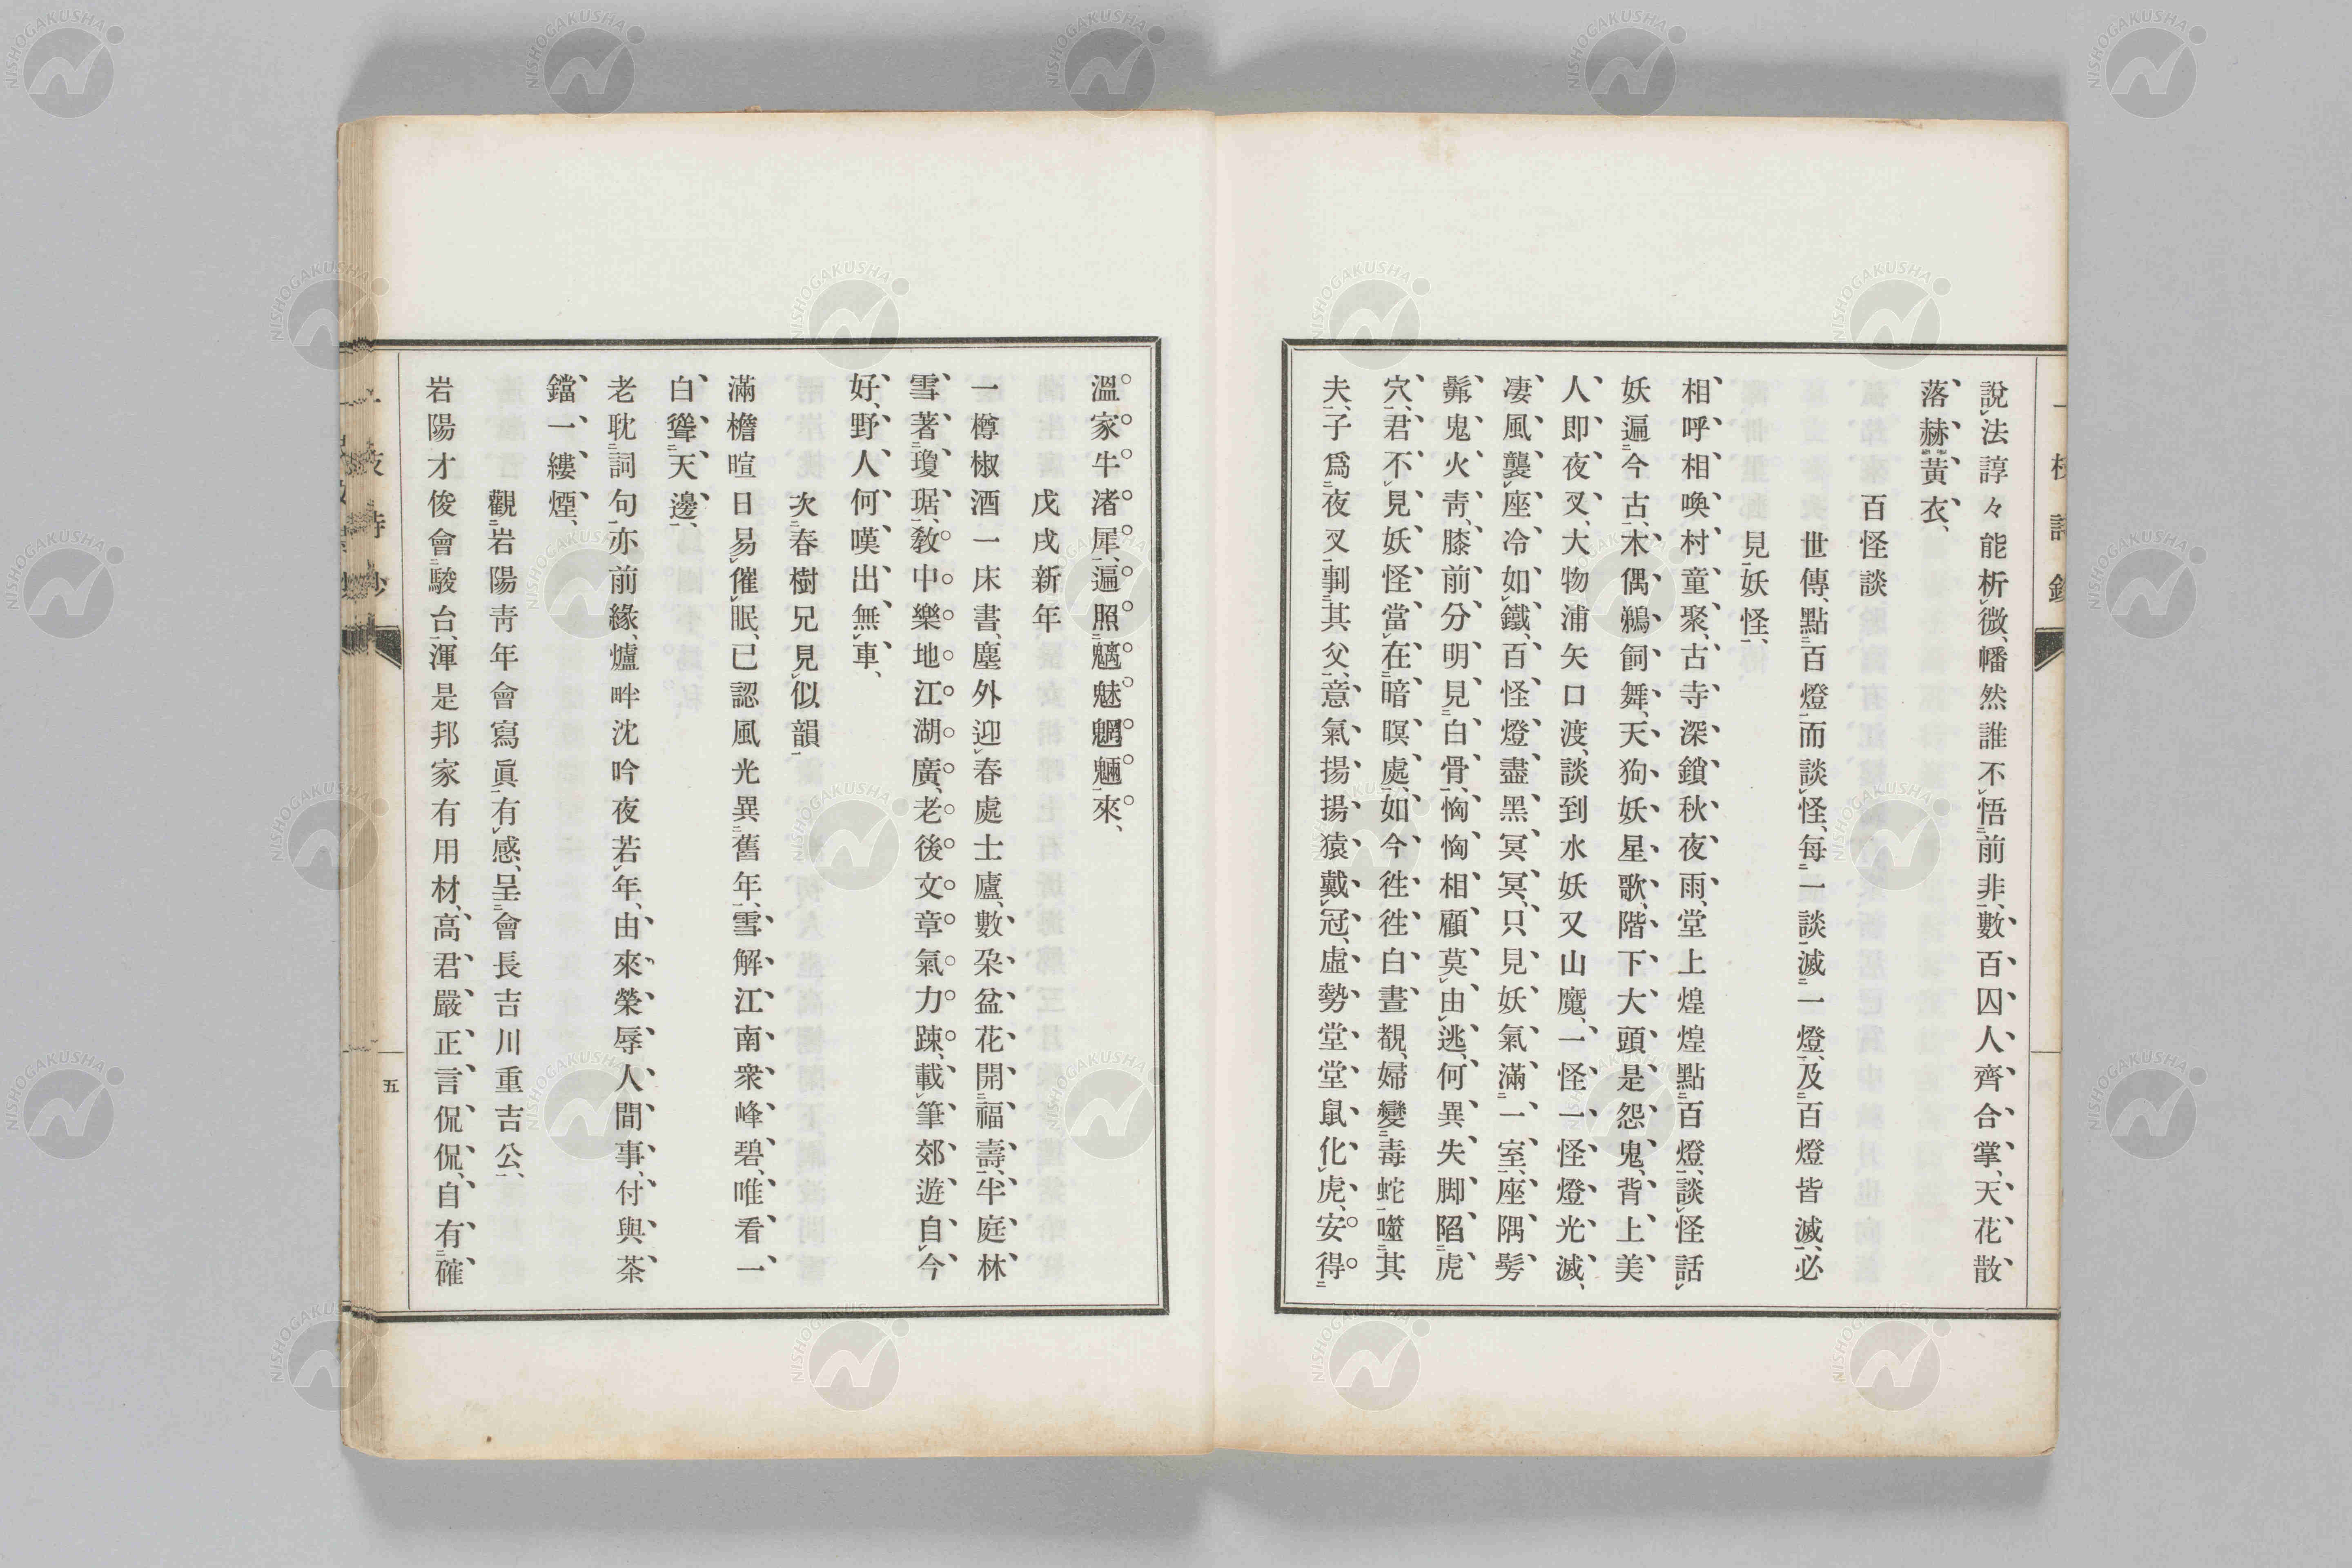 說法諄々能析微、幡然誰不悟前非、數百囚人齊合掌、天花散
落赫黃衣、
百怪談
世傳、點百燈而談怪、每一談滅一燈、及百燈皆滅、必
見妖怪、
相呼相喚村童聚、古寺深鎖秋夜雨、堂上煌煌點百燈、談怪話
妖遍今古、木偶鵜飼舞、天狗妖星歌、階下大頭是怨鬼、背上美
人即夜叉、大物浦矢口渡、談到水妖又山魔、一怪一怪燈光滅、
凄風襲座冷如鐵、百怪燈盡黑冥冥、只見妖氣滿一室、座隅髣
髴鬼火靑、膝前分明見白骨、恟恟相顧莫由逃、何異失脚陷虎
穴、君不見妖怪當在暗暝處、如今徃徃白晝覩、婦變毒蛇噬其
夫、子爲夜叉剚其父、意氣揚揚猿戴冠、虛勢堂堂鼠化虎、安得
溫家牛渚犀、遍照魑魅魍魎來、
戊戌新年
一樽椒酒一床書、塵外迎春處士廬、數朶盆花開福壽、半庭林
雪著瓊琚、敎中樂地江湖廣、老後文章氣力踈、載筆郊遊自今
好、野人何嘆出無車、
次春樹兄見似韻
滿檐暄日易催眠、已認風光異舊年、雪解江南衆峰碧、唯看一
白聳天邊、
老耽詞句亦前緣、爐畔沈吟夜若年、由來榮辱人間事、付與茶
鐺一縷煙、
觀岩陽靑年會寫眞有感、呈會長吉川重吉公、
岩陽才俊會駿台、渾是邦家有用材、高君嚴正言侃侃、自有確
五